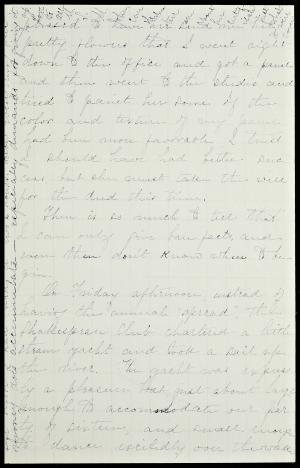 pleased to have me send her the
pretty flowers that I went right
down to the office and got a panel
and then went to the studio and
tried to paint her some. If the
color and texture of my panel
had been more favorable I trust
I should have had better suc
cess but she must take the will
for the deed this time.
There is so much to tell that
I can only give bare facts, and
even then don't know where to be
gin.
On Friday afternoon instead of
having the annual "spread", the
Shakesperean Club chartered a little
steam yacht and took a sail up
the river. The yacht was expressly
a pleasure boat just about large
enough to accommodate our par
ty of sixteen, and small enough
to dance excitedly over the waves